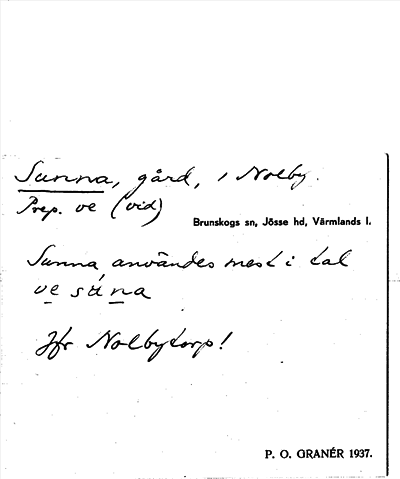 Sunna, gård, i Nolby.
Prep. ve (vid)
Brunskogs sn, Jösse hd, Värmlands l.
Sunna användes mest i tal
ve súna
Jfr Nolbytorp!
P. O. GRANÉR 1937.